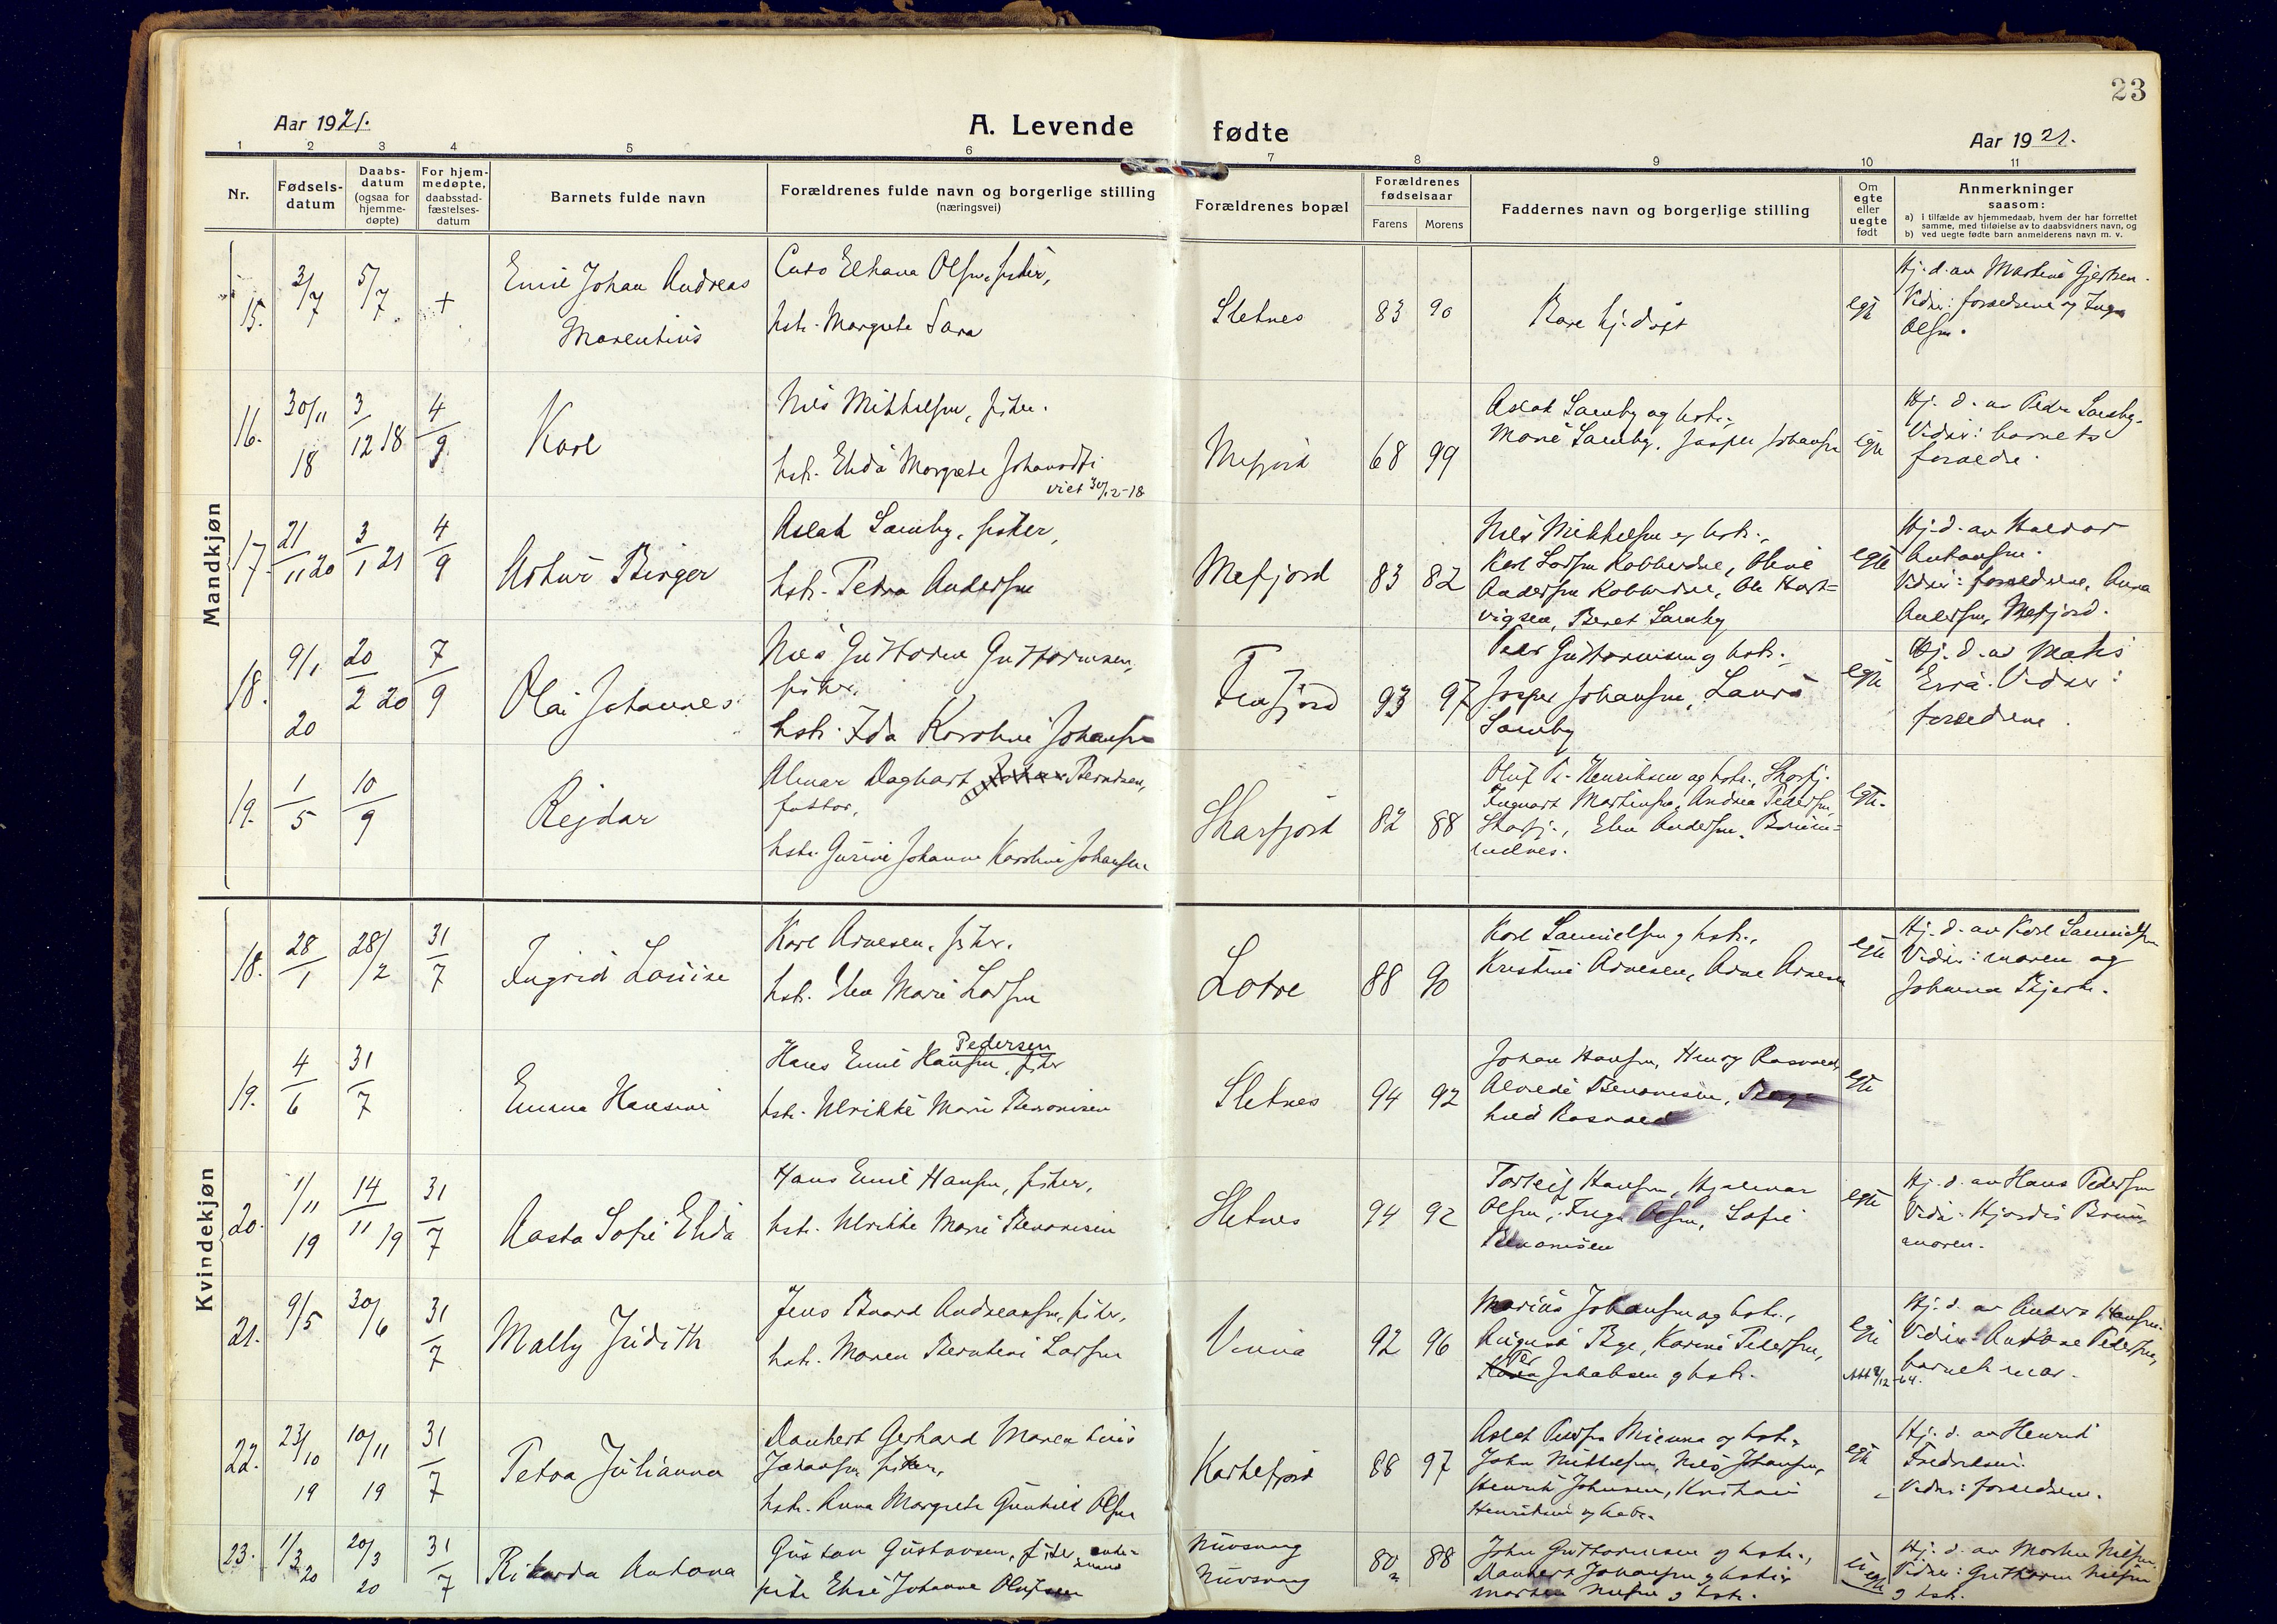 23
Aar 1921.
A. Levende fødte
Aar 1921.
1 2 3 4 5 6 7 8 9 10 11
Nr.
Fødsels-
datum
Daabs-
datum
(ogsaa for
hjemme-
døpte)
For hjem-
medøpte,
daabsstad-
fæstelses-
datum
Barnets fulde navn
Forældrenes fulde navn og borgerlige stilling
(næringsvei)
Forældrenes bopæl
Forældrenes
fødselsaar
Farens Morens
Faddernes navn og borgerlige stilling
Om
egte
eller
uegte
født
Anmerkninger
saasom:
a) i tilfælde av hjemmedaab, hvem der har forrettet
samme, med tilføielse av to daabsvidners navn, og
b) ved uegte fødte barn anmelderens navn m. v.
Mandkjøn
15. 3/7 5/7 +
Emil Johan Andreas
Marentius
Olsen, fisker,
hstr. Margrete Sara
Sletnes 83 90
Bare hj. døpt
egte
Hj. d. av Martine Gjertsen.
Vidner: forældrene og Inga
Olsen.
16. 30/11 18 3/12 18 4/9
Kare
Nils Mikkelsen, fisker.
hstr. Elida Margrete Johansdtr
viet 30/12-18
Mefjord 68 99
Aslak Samby og hstr.,
Marie Samby, Jasper Johansen
egte
Hj. d. av Peder Samby.
Vidner: barnets
forældre.
17. 21/11 20 3/1 21 4/9
Artur Birger
Aslak Samby, fisker,
hstr. Petra Andersen
Mefjord 83 82
Nils Mikkelsen og hstr.,
Karl Larsen Kobberdne, Oline
Andersen Kobberdne, Ole Hart=
vigsen, Beret Samby
egte
Hj. d. av Haldor
Antonsen.
Vidner: forældrene, Anna
Andersen, Mefjord.
18. 9/1 20 20/2 20 7/9
Olai Johannes
Nils Guttorm Guttormsen,
fisker,
hstr. Ida Karoline Johansen
Finfjord 93 97
Peder Guttormsen og hstr.,
Jasper Johansen, Laura
Samby
egte
Hj. d. av Mathis
Erra. Vidner:
forældrene.
19. 1/5 10/9
Rejdar
Almar Daghart Berntsen,
hstr. Gurine Johanne Karoline Johansen
Skarfjord 82 88
Oluf P. Henriksen og hstr., Skarfj.
Ingvart Martinsen, Andrea Pedersen
Skarfj., Elen Andersen,
egte.
Kvindekjøn
18. 28/1 28/2 31/7
Ingrid Louise
Karl Arnesen, fisker.
hstr. Elen Marie Larsen
Lotre 88 90
Karl Samuelsen og hstr.,
Kristine Arnesen, Arne Arnesen
egte
Hj. d. av Karl Samuelsen
Vidner: moren og
Johanna Bjerk.
19. 4/6 31/7
Emma Hansine
Pedersen
Hans Emil Hansen, fisker
hstr. Ulrikke Marie Benonisen
Sletnes 94 92
Johan Hansen, Henry Rasvaed,
Alvede Benonisen,
hild Rasvaed
egte
20. 1/11 19 14/11 19 31/7
Aasta Sofie Elida
Hans Emil Hansen, fisker,
hstr. Ulrikke Marie Benonisen
Sletnes 94 92
Torleif Hansen, Hjalmar
Olsen, Inga Olsen, Sofie
Benonisen
egte
Hj. d. av Hans Pedersen
Vidn: Hjørdis Bruun,
moren.
21. 9/5 30/6 31/7
Mally Judith
Jens Baard Andreassen, fisker,
hstr. Maren Berntine Larsen
Vinna 92 96
Marius Johansen og hstr.,
August Bye, Karine Pedersen,
Per
Jakobsen og hstr.
egte
Att 9/12-64.
Hj. d. av Anders Hansen.
Vidner: Antone Pedersen,
barnets mor.
22. 23/10 19 10/11 19 31/7
Petra Julianna
Dankert Gerhard Marentius
Johansen, fisker,
hstr. Anna Margrete Gunhild Olsen
Karkefjord 88 97
Aslak Pedersen Mienna og hstr.,
John Mikkelsen, Nils Johansen,
Henrik Johnsen, Kristian
Henriksen og hstr.
egte
Hj. d. av Henrik
Fredriksen.
Vidner: forældrene.
23. 1/3 20 20/3 20 31/7
Rikarda Antona
Gustav Gustavsen, fisker, enke-
mand
pike Elise Johanne Olufsen
Nuvsvaag
Nuvsvaag
80 88
John Guttormsen og hstr.,
Dankert Johansen og hstr.,
Morten Nilsen og hstr.
uegte
Hj. d. av Morten Nilsen.
Vidner: Guttorm Nilsen
og hstr.